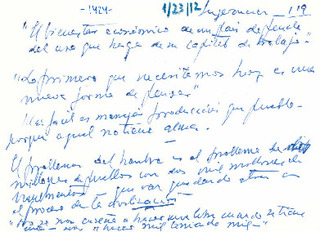 -1424- 1/23/12 Sugerencias 119
"El bienestar económico de un país depende
del uso que haga de su capital de trabajo"-
"Lo primero que necesitamos hoy es una
nueva forma de pensar"
Más fácil es manejar producción que pueblo-
porque aquel no tiene alma.
El problema del hombre es el problema de
millones de pueblos con dos mil millones de
que van quedando atrás en
el proceso de la civilización
"No se nos enseña a hacer una cosa cuando se tiene
"hacer mil teniendo mil"-